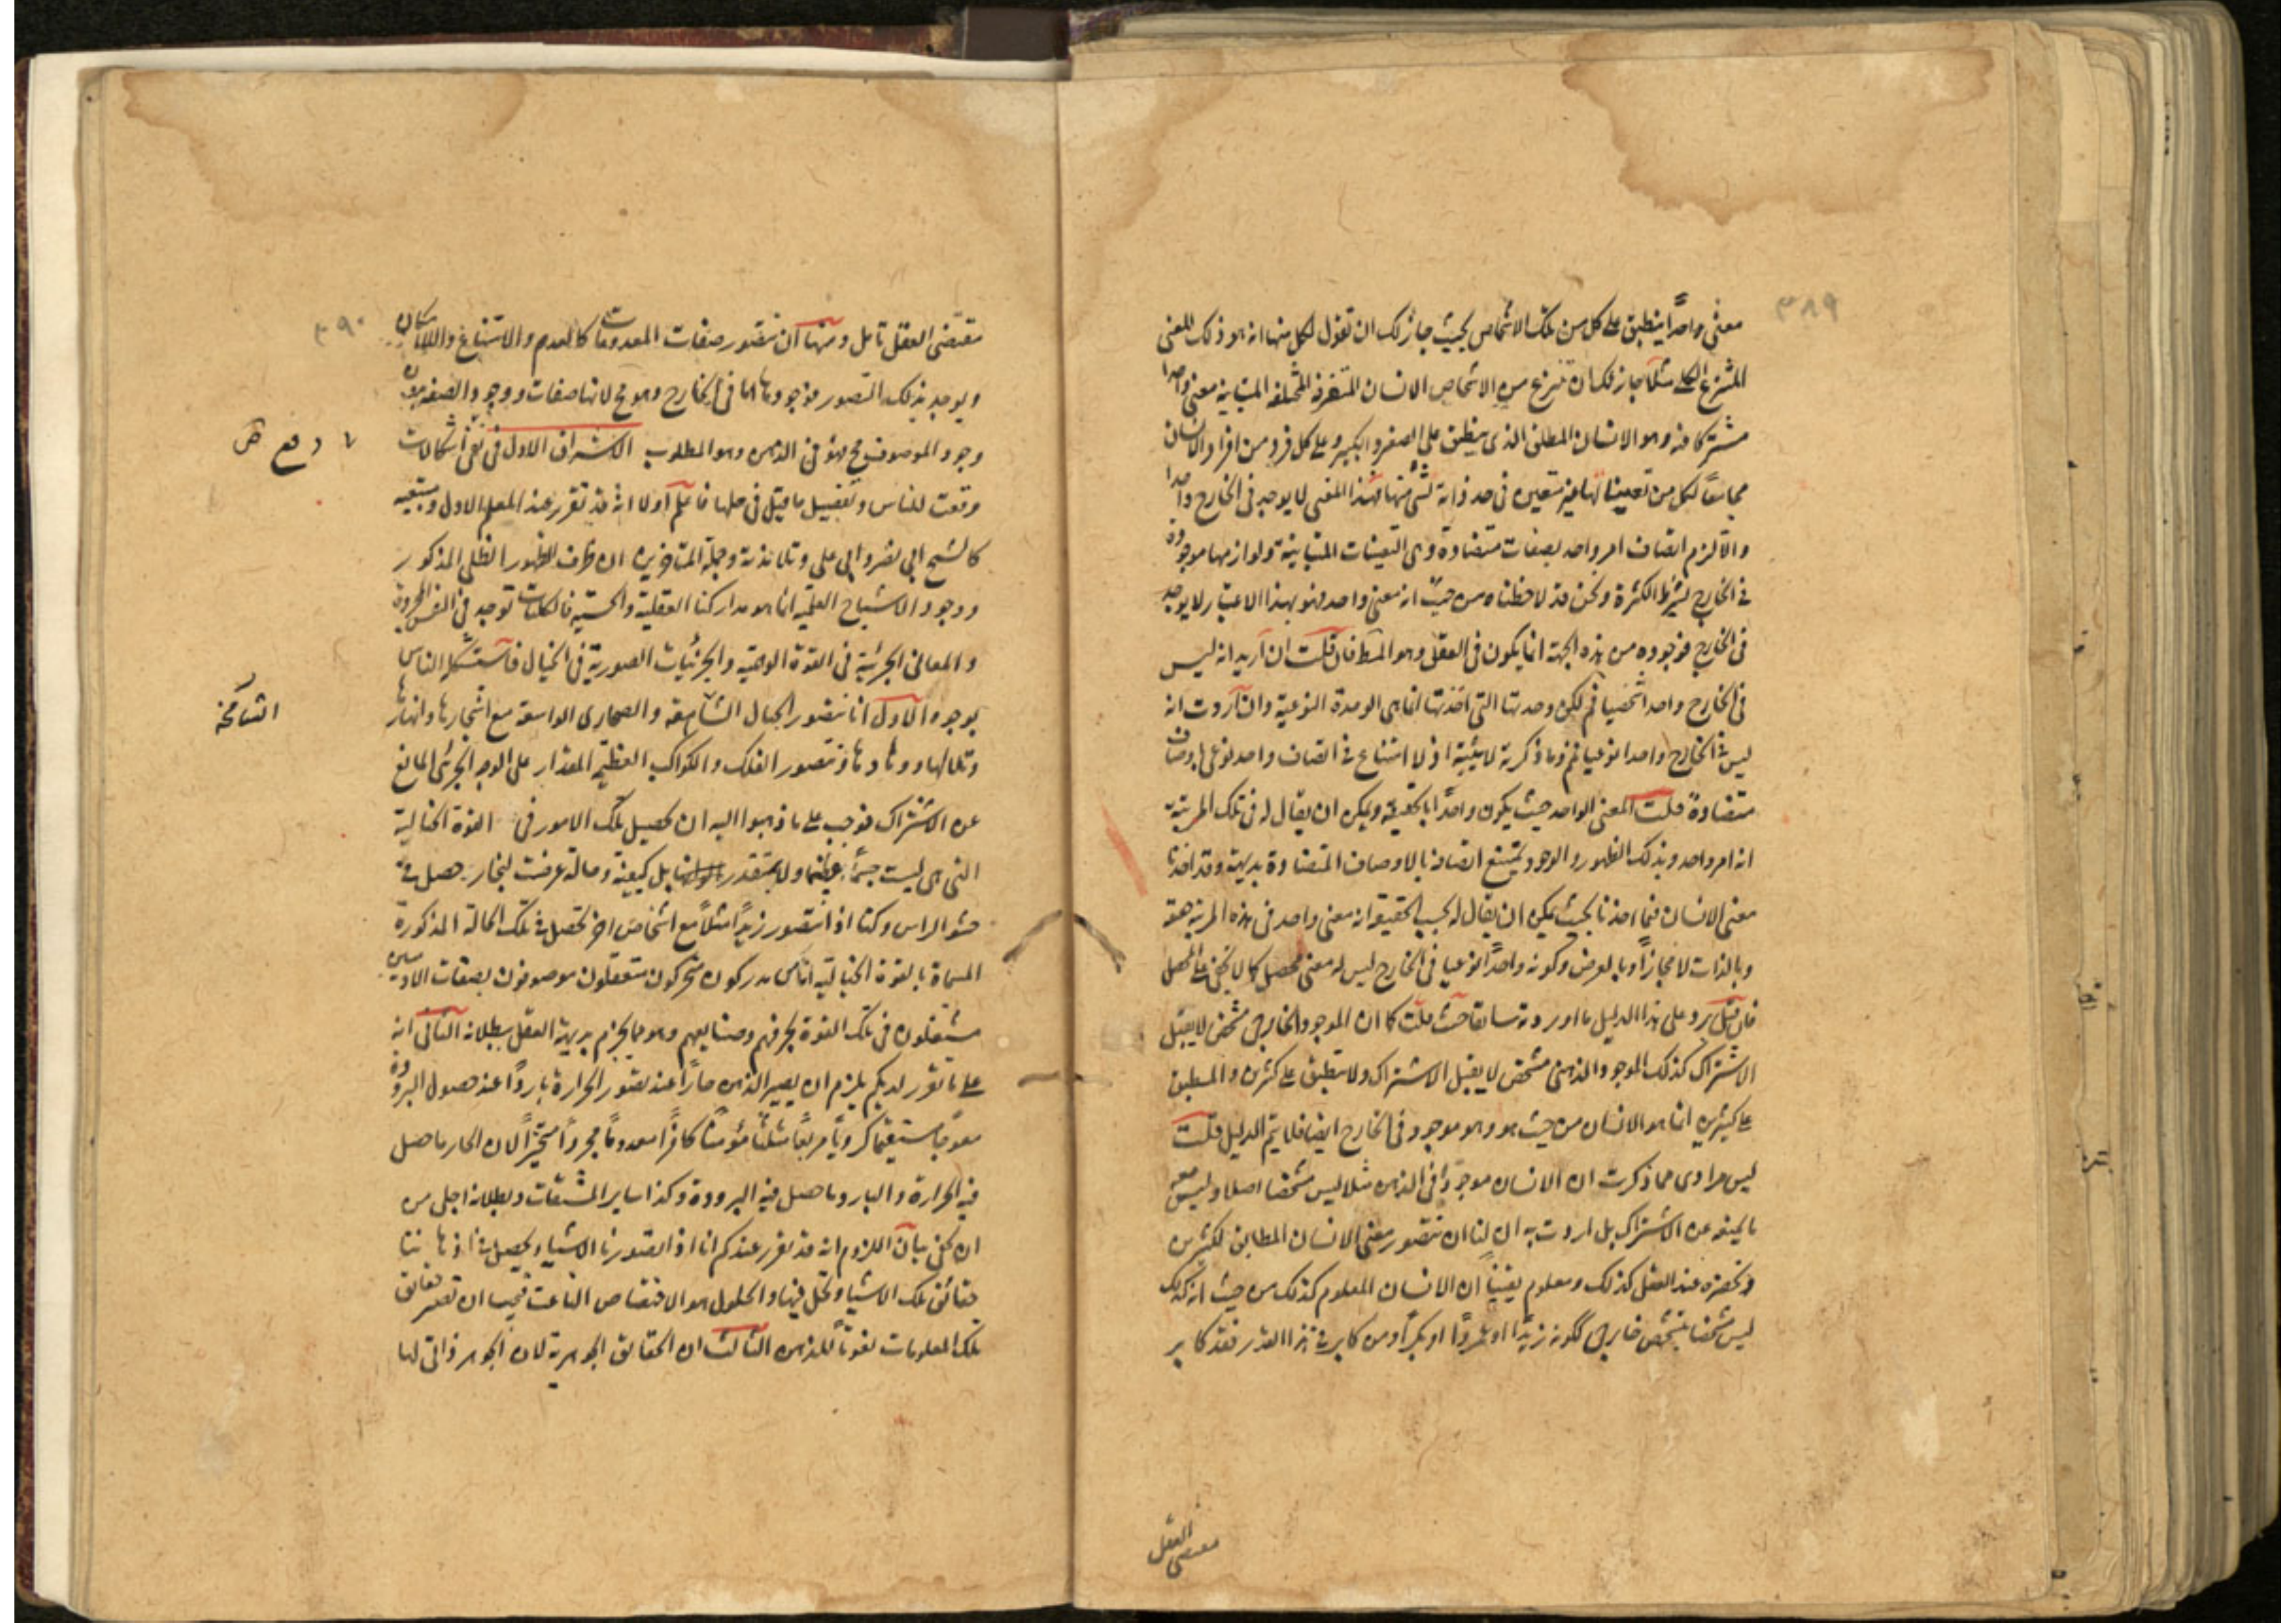 ٣٨٩
معنى واحداً ينطبق على كل من تلك الاشخاص بحيث جاز لك ان تقول لكل منها انه هو ذلك المعنى
المنتزع الكلى مثلا جاز لك ان تنتزع من الاشخاص الانسان المتفرقة المختلفة المتباينة معنى واحدا
مشتركا فيه وهو الانسان المطلق الذى ينطبق على الصغير والكبير وعلى كل فرد من افراد الانسان
مجامعاً لكل من تعيناتها غير متعين فى حد ذاته بشئ منها فهذا المعنى لا يوجد فى الخارج واحدا
والا لزم اتصاف امر واحد بصفات متضادة وهى التعينات المتباينة ولوازمها موجودة
فى الخارج بشرط الكثرة ونحن قد لاحظناه من حيث انه معنى واحد فهو بهذا الاعتبار لا يوجد
فى الخارج فوجوده من هذه الجهة انما يكون فى العقل وهو المط فان قلت ان اريد انه ليس
فى الخارج واحدا شخصيا فم لكن وحدتها التى اخذتها انما هى الوحدة النوعية وان اردت انه
ليس فى الخارج واحدا نوعيا فم وما ذكرته لا يثبته اذ لا امتناع فى اتصاف واحد نوعى باوصاف
متضادة قلت المعنى الواحد حيث يكون واحداً بالحقيقة ويمكن ان يقال له فى تلك المرتبة
انه امر واحد وبذلك الظهور والوجود يمتنع اتصافه بالاوصاف المتضادة بديهة وقد اخذنا
معنى الانسان فيما اخذنا بحيث يمكن ان يقال له بحسب الحقيقة انه معنى واحد فى هذه المرتبة حقيقة
وبالذات لا مجازاً وبالعرض وكونه واحداً نوعيا فى الخارج ليس له معنى محصل كما لا يخفى على المحصل
فان قيل يرد على هذا الدليل ما اوردته سابقا حيث قلت كما ان الموجود الخارجى مشخص لا يقبل
الاشتراك كذلك الموجود الذهنى مشخص لا يقبل الاشتراك ولا ينطبق على كثيرين والمنطبق
على كثيرين انما هو الانسان من حيث هو وهو موجود فى الخارج ايضا فلا يتم الدليل قلت
ليس مرادى مما ذكرت ان الانسان موجوداً فى الذهن مثلا ليس مشخصا اصلا وليس معه
ما يمنعه عن الاشتراك بل اردت به ان لنا ان نتصور معنى الانسان المطابق لكثيرين
ونحضره عند العقل كذلك ومعلوم يقيناً ان الانسان المعلوم كذلك من حيث انه كذلك
ليس مشخصا بتشخص خارجى ككونه زيداً او عمرواً او بكراً ومن كابر فى هذا القدر فقد كابر
مقتضى العقل
٣٩٠
مقتضى العقل تامل ومنها ان نتصور صفات المعدومات كالعدم والامتناع واللاامكان
ويوجد بذلك التصور فوجودها اما فى الخارج وهو مح لانها صفات ووجود الصفه بدون
وجود الموصوف مح فهو فى الذهن وهو المطلوب الاشراق الاول فى نقض اشكالات
دفع
وقعت للناس وتفصيل ما قيل فى حلها فاعلم اولا انه قد تقرر عند المعلم الاول ومتبعيه
كالشيخ ابى نصر وابى على وتلامذته وجملة المتاخرين ان ظرف الظهور الظلى المذكور
ووجود الاشباح العلمية انما هو مداركنا العقلية والحسية فالكليات توجد فى النفس المجردة
والمعانى الجزئية فى القوة الواهمة والجزئيات الصورية فى الخيال فاستشكل الناس
بوجوه الاول انا نتصور الجبال الشاهقة والصحارى الواسعة مع اشجارها وانهارها
الشامخة
وتلالها ووهادها ونتصور الفلك والكواكب العظيم المقدار على الوجه الجزئى المانع
عن الاشتراك فوجب على ما ذهبوا اليه ان تحصيل تلك الامور فى القوة الخيالية
التى هى ليست جسماً عظيما ولا بمتقدر بل كيفية وحالة عرضت لبخار حصل فى
حشو الراس وكذا اذا نتصور زيداً مثلاً مع اشخاص اخر تحصل فى تلك الحالة المذكورة
المسماة بالقوة الخيالية اناس مدركون متحركون متعقلون موصوفون بصفات الادميين
مشتغلون فى تلك القوة بحرفهم وصنايعهم وهو مما يجزم بديهة العقل ببطلانه الثانى انه
على ما تقرر لديكم يلزم ان يصير الذهن حاراً عند تصور الحرارة بارداً عند حصول البرودة
معوجاً مستقيما كروياً مربعاً مثلثاً مؤمناً كافراً معدوماً مجرداً متحيزاً لان الحار ما حصل
فيه الحرارة والبارد ما حصل فيه البرودة وكذا ساير المشتقات وبطلانه اجلى من
ان يخفى بيان اللزوم انه قد تقرر عندكم انا اذا تصورنا الاشياء يحصل فى اذهاننا
حقائق تلك الاشياء وتحل فيها والحلول هو الاختصاص الناعت فيجب ان تصير حقايق
تلك المعلومات نعوتاً للذهن الثالث ان الحقايق الجوهرية لان الجوهر ذاتى لها